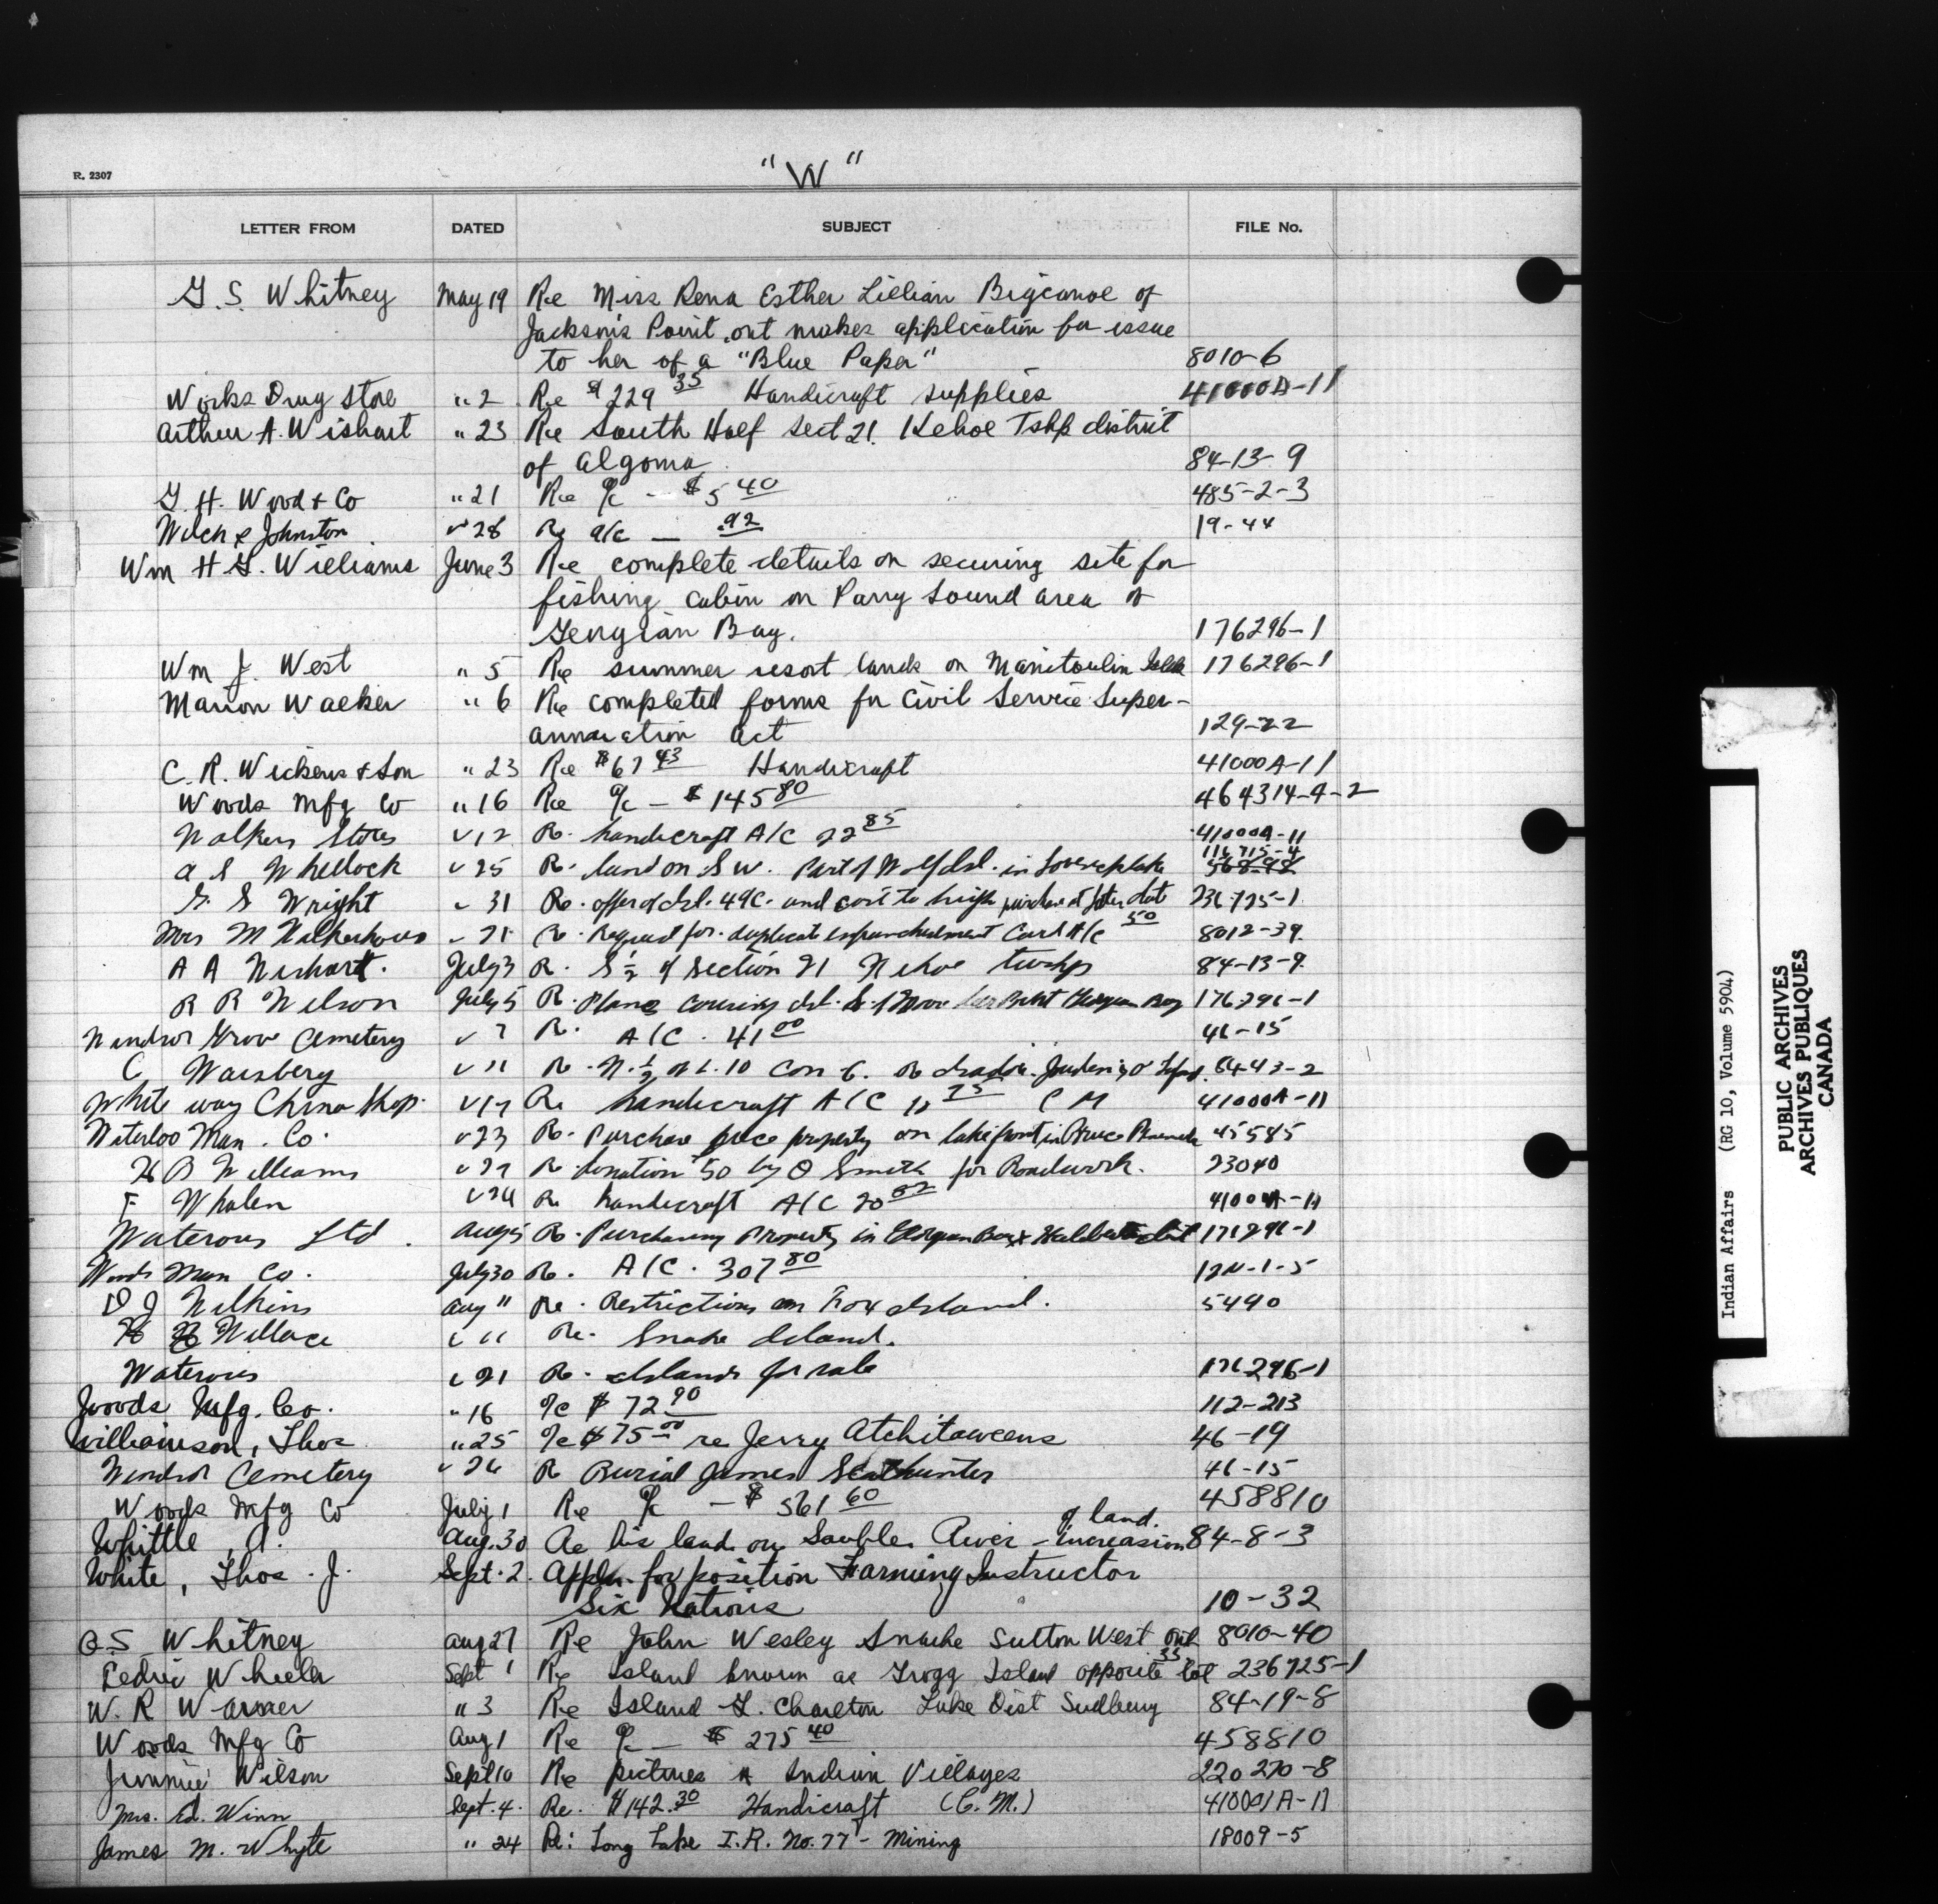 "W"
R. 2307
LETTER FROM DATED SUBJECT FILE No.
G. S. Whitney May 19 Re Miss Rena Esther Lillian Bigcanoe of
Jackson's Point, ont makes application for issue
to her of a "Blue Paper" 8010-6
Works Drug Store " 2 Re $229 35 Handicraft supplies 41000A-11
Arthur A. Wishart " 23 Re South Half Sect 21. Kehoe Tshp district
of Algoma 84-13-9
G. H. Wood & Co " 21 Re a/c - $5 40 485-2-3
Welch & Johnston " 28 Re a/c - .92 19-44
Wm H G. Williams June 3 Re complete details on securing site for
fishing cabin on Parry Sound area of
Georgian Bay. 176296-1
Wm J. West " 5 Re summer resort lands on Manitoulin 176296-1
Marion Walker " 6 Re completed forms for Civil Service Super-
annuation act 129-22
C. R. Wickens & Son " 23 Re $67 43 Handicraft 41000A-11
Woods Mfg Co " 16 Re a/c - $145 80 464314-A-2
Walkers Stores " 12 Re. handicraft A/C 22 85 41000A-11
116715-4
A S Whellock " 25 Re. land on S W. Part of Wolf Isl. in 568-98
G. S Wright " 31 Re. offer of Isl. 49C. and cost to purchase at later date 236725-1
Mrs M " 21 Re. Request for duplicate enfranchisement Card A/C 50 8012-39
A A Wishart. July 3 R. S ½ of Section 21 Kehoe twshp 84-13-9
R R Wilson July 5 R. Plans covering Isl. 176296-1
Windsor Grove Cemetery " 7 R. A/C. 41 00 46-15
C Waisberg " 11 R. N. ½ of L. 10 Con 6. 84-43-2
White way China Shop. " 17 Re handicraft A/C 11 75 C M 41000A-11
Waterloo Man. Co. " 23 Re. Purchase price property on lakefront in Bruce 45585
H B Williams " 27 R donation 50 by O Smith for Roadwork. 23040
F Whalen " 24 Re handicraft A/C 20 82 41000A-11
Waterous Ltd. Aug 5 Re. Purchasing Property in Georgian Bay & Haliburton dist 176296-1
Woods Man Co. July 30 Re. A/C. 307 80 124-1-5
D J Wilkins Aug 11 Re. Restrictions on Fox Island. 5490
H Wallace " 11 Re. Snake Island.
Waterous " 21 Re. Islands for sale 176296-1
Woods Mfg. Co. " 16 a/c $72 90 112-213
Williamson, Thos " 25 a/c $75 00 re Jerry Atchitaweens 46-19
Windsor Cemetery " 26 R Burial James Scathunter 46-15
Woods Mfg Co July 1 Re a/c - $561 60 458810
of land.
Whittle, A. Aug. 30 Re his land on Sauble River - increasing 84-8-3
White, Thos. J. Sept. 2. Appln. for position Farming Instructor
Six Nations 10-32
G S Whitney Aug 27 Re John Wesley Snache Sutton West Ont 8010-40
Cedric Wheeler Sept 1 Re Island known as Grogg Island opposite lot 33 236725-1
W. R Warner " 3 Re Island G. Charlton Lake Dist Sudbury 84-19-8
Woods Mfg Co Aug 1 Re a/c - $275 40 458810
Jimmie Wilson Sept 10 Re pictures of Indian Villages 220270-8
Mrs. Ed. Winn Sept. 4. Re. $142.30 Handicraft (C. M.) 41000A-11
James M. Whyte " 24 Re: Long Lake I.R. No. 77 - Mining 18009-5
W
Indian Affairs (RG 10, Volume 5904)
PUBLIC ARCHIVES
ARCHIVES PUBLIQUES
CANADA